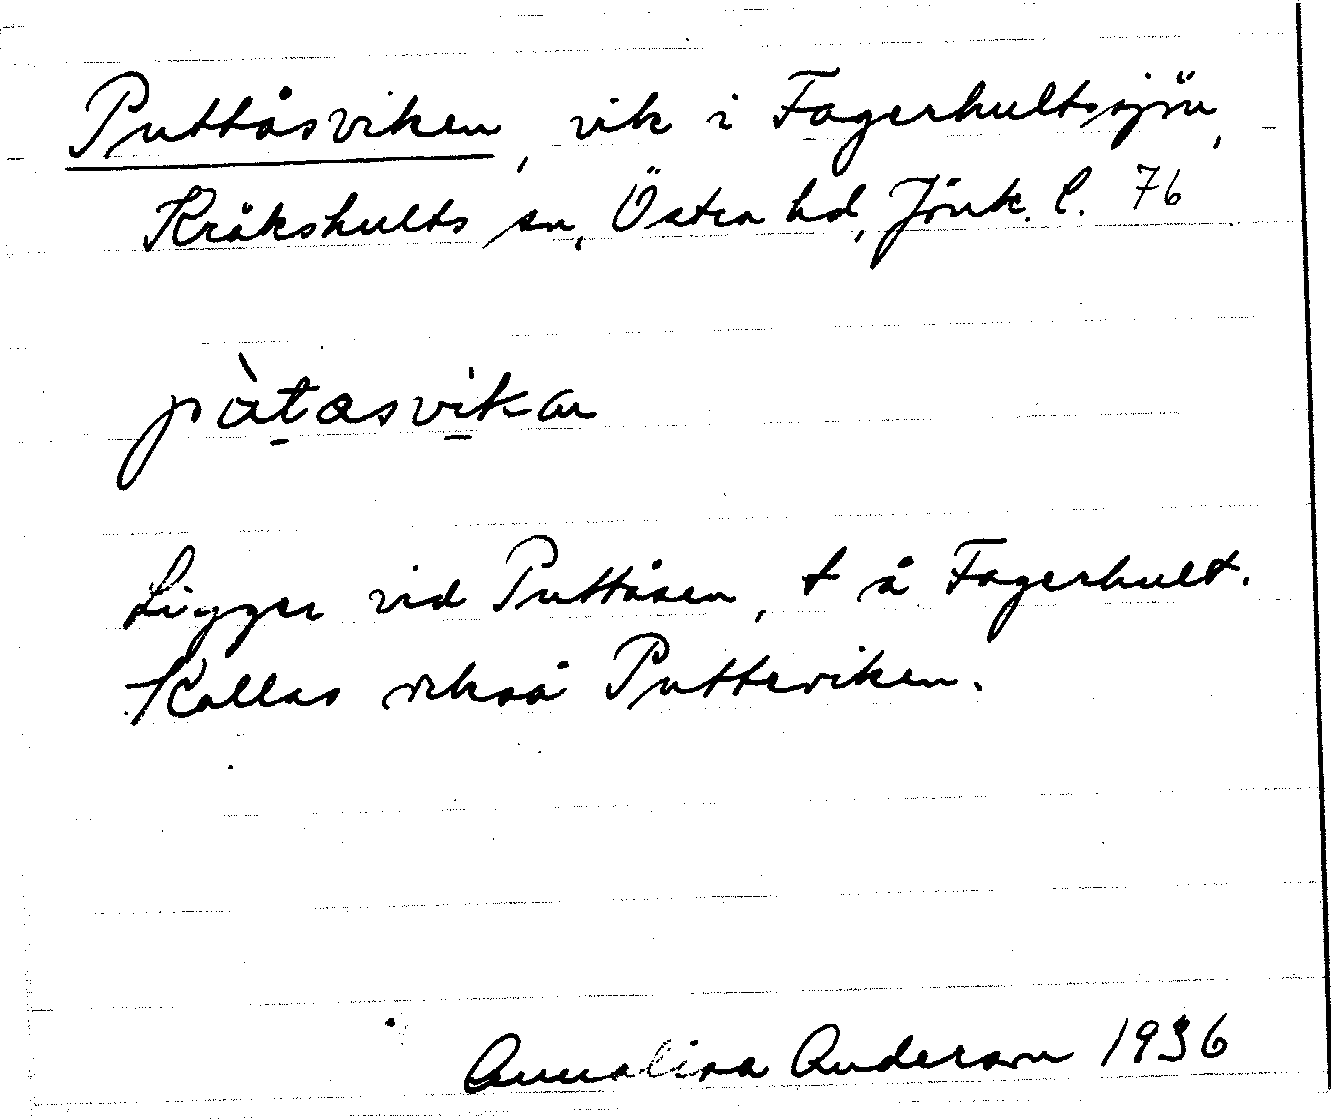 Puttåsviken, vik i Fagerhultssjön,
Kråkshults sn, Östra hd, Jönk. l. 76
pàt̠asvi̠kan
Ligger vid Puttåsen, t å Fagerhult.
Kallas också Putteviken.
Annalisa Anderson 1936